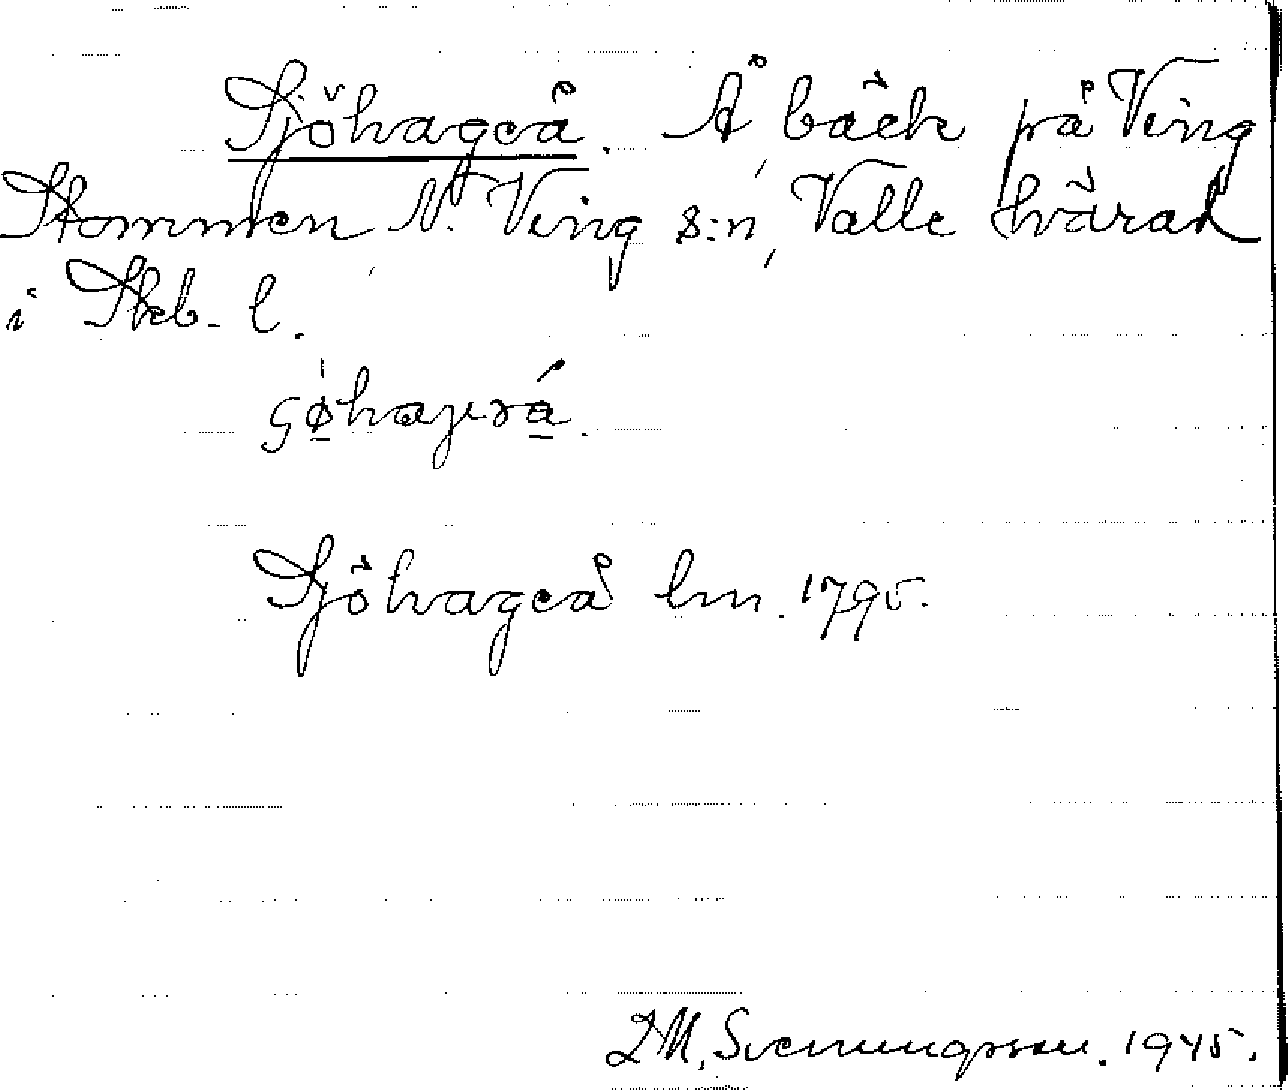 Sjöhageå. Å, bäck på Ving
Stommen N. Ving s:n, Valle härad
i Skb. l.
Sjöhageå lm. 1795.
Svenungsson. 1945.